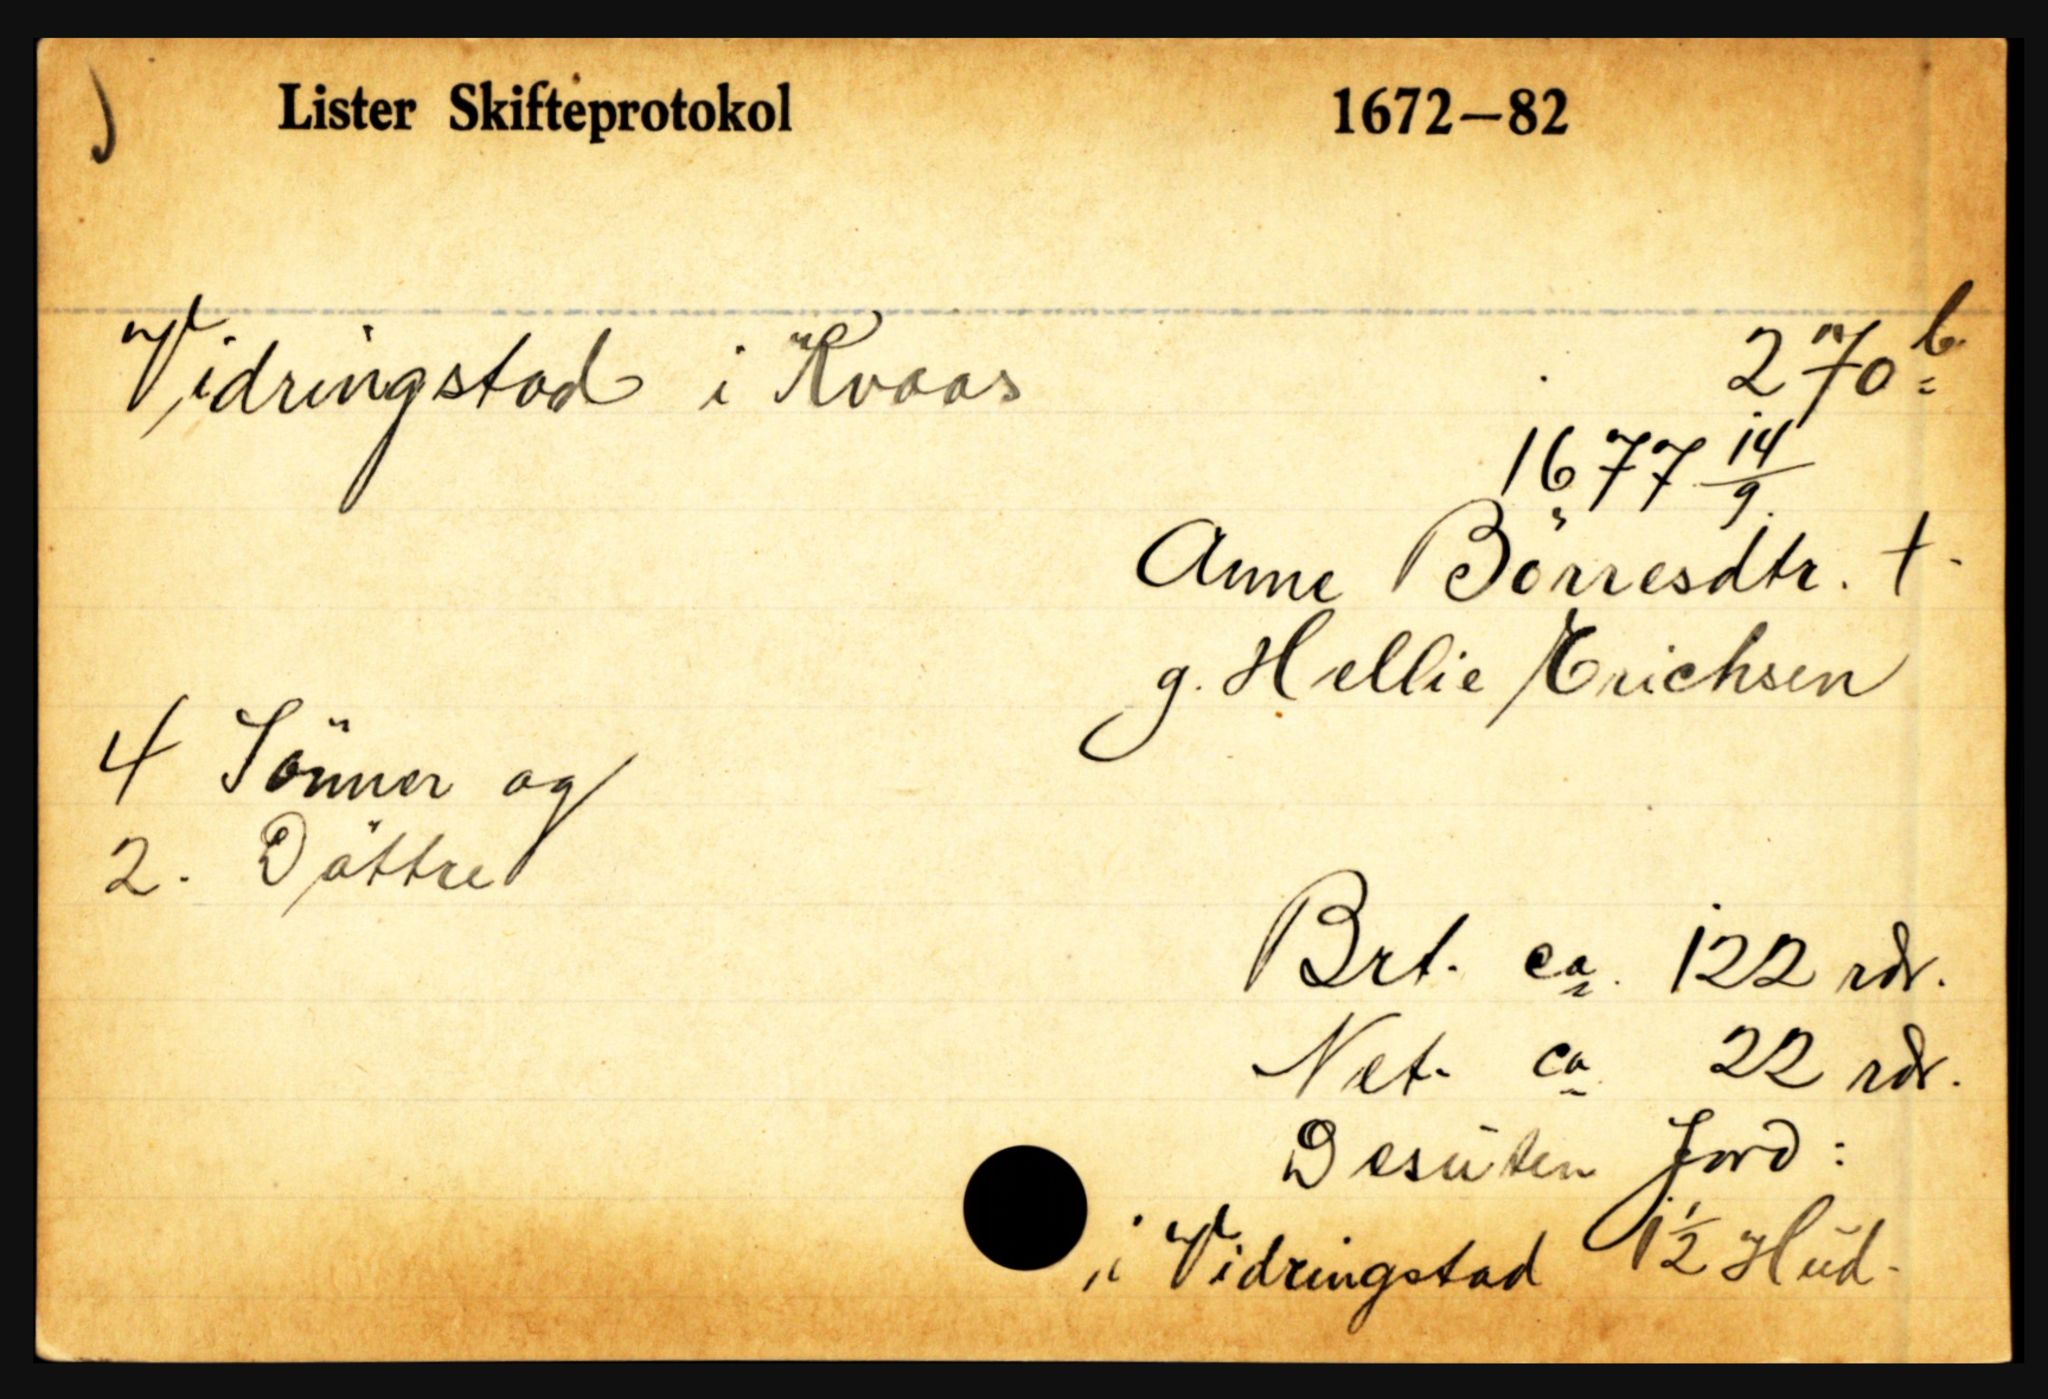 Lister Skifteprotokol 1672—82
Vidringstad i Kvaas 270 b
1677 14/9
Anne Börresdtr. †
g. Hellie Erichsen
4 Sönner og
2. Döttre
Brt. ca. 122 rdr.
Net. ca 22 rdr.
Desuten Jord:
i Vidringstad 1 1/2 Hud.